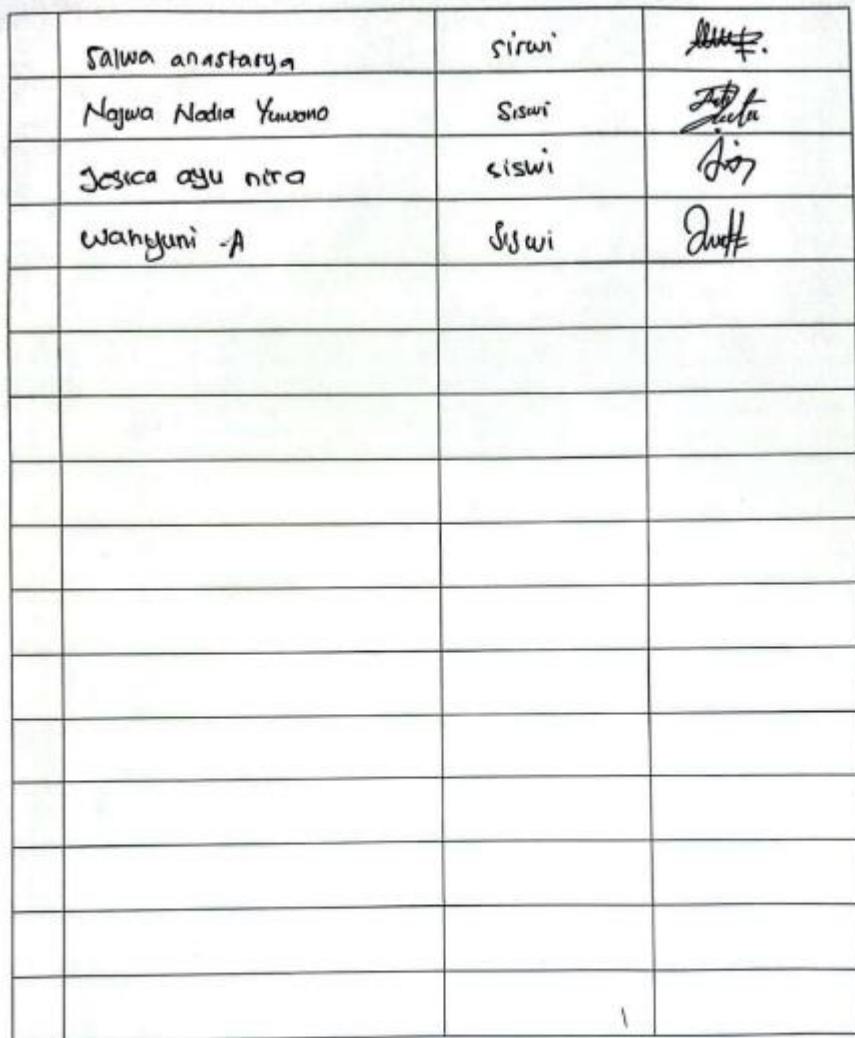 Salwa anastasya siswi
Najwa Nadia Yuwono Siswi
Jesica ayu nira siswi
Wahyuni -A Siswi